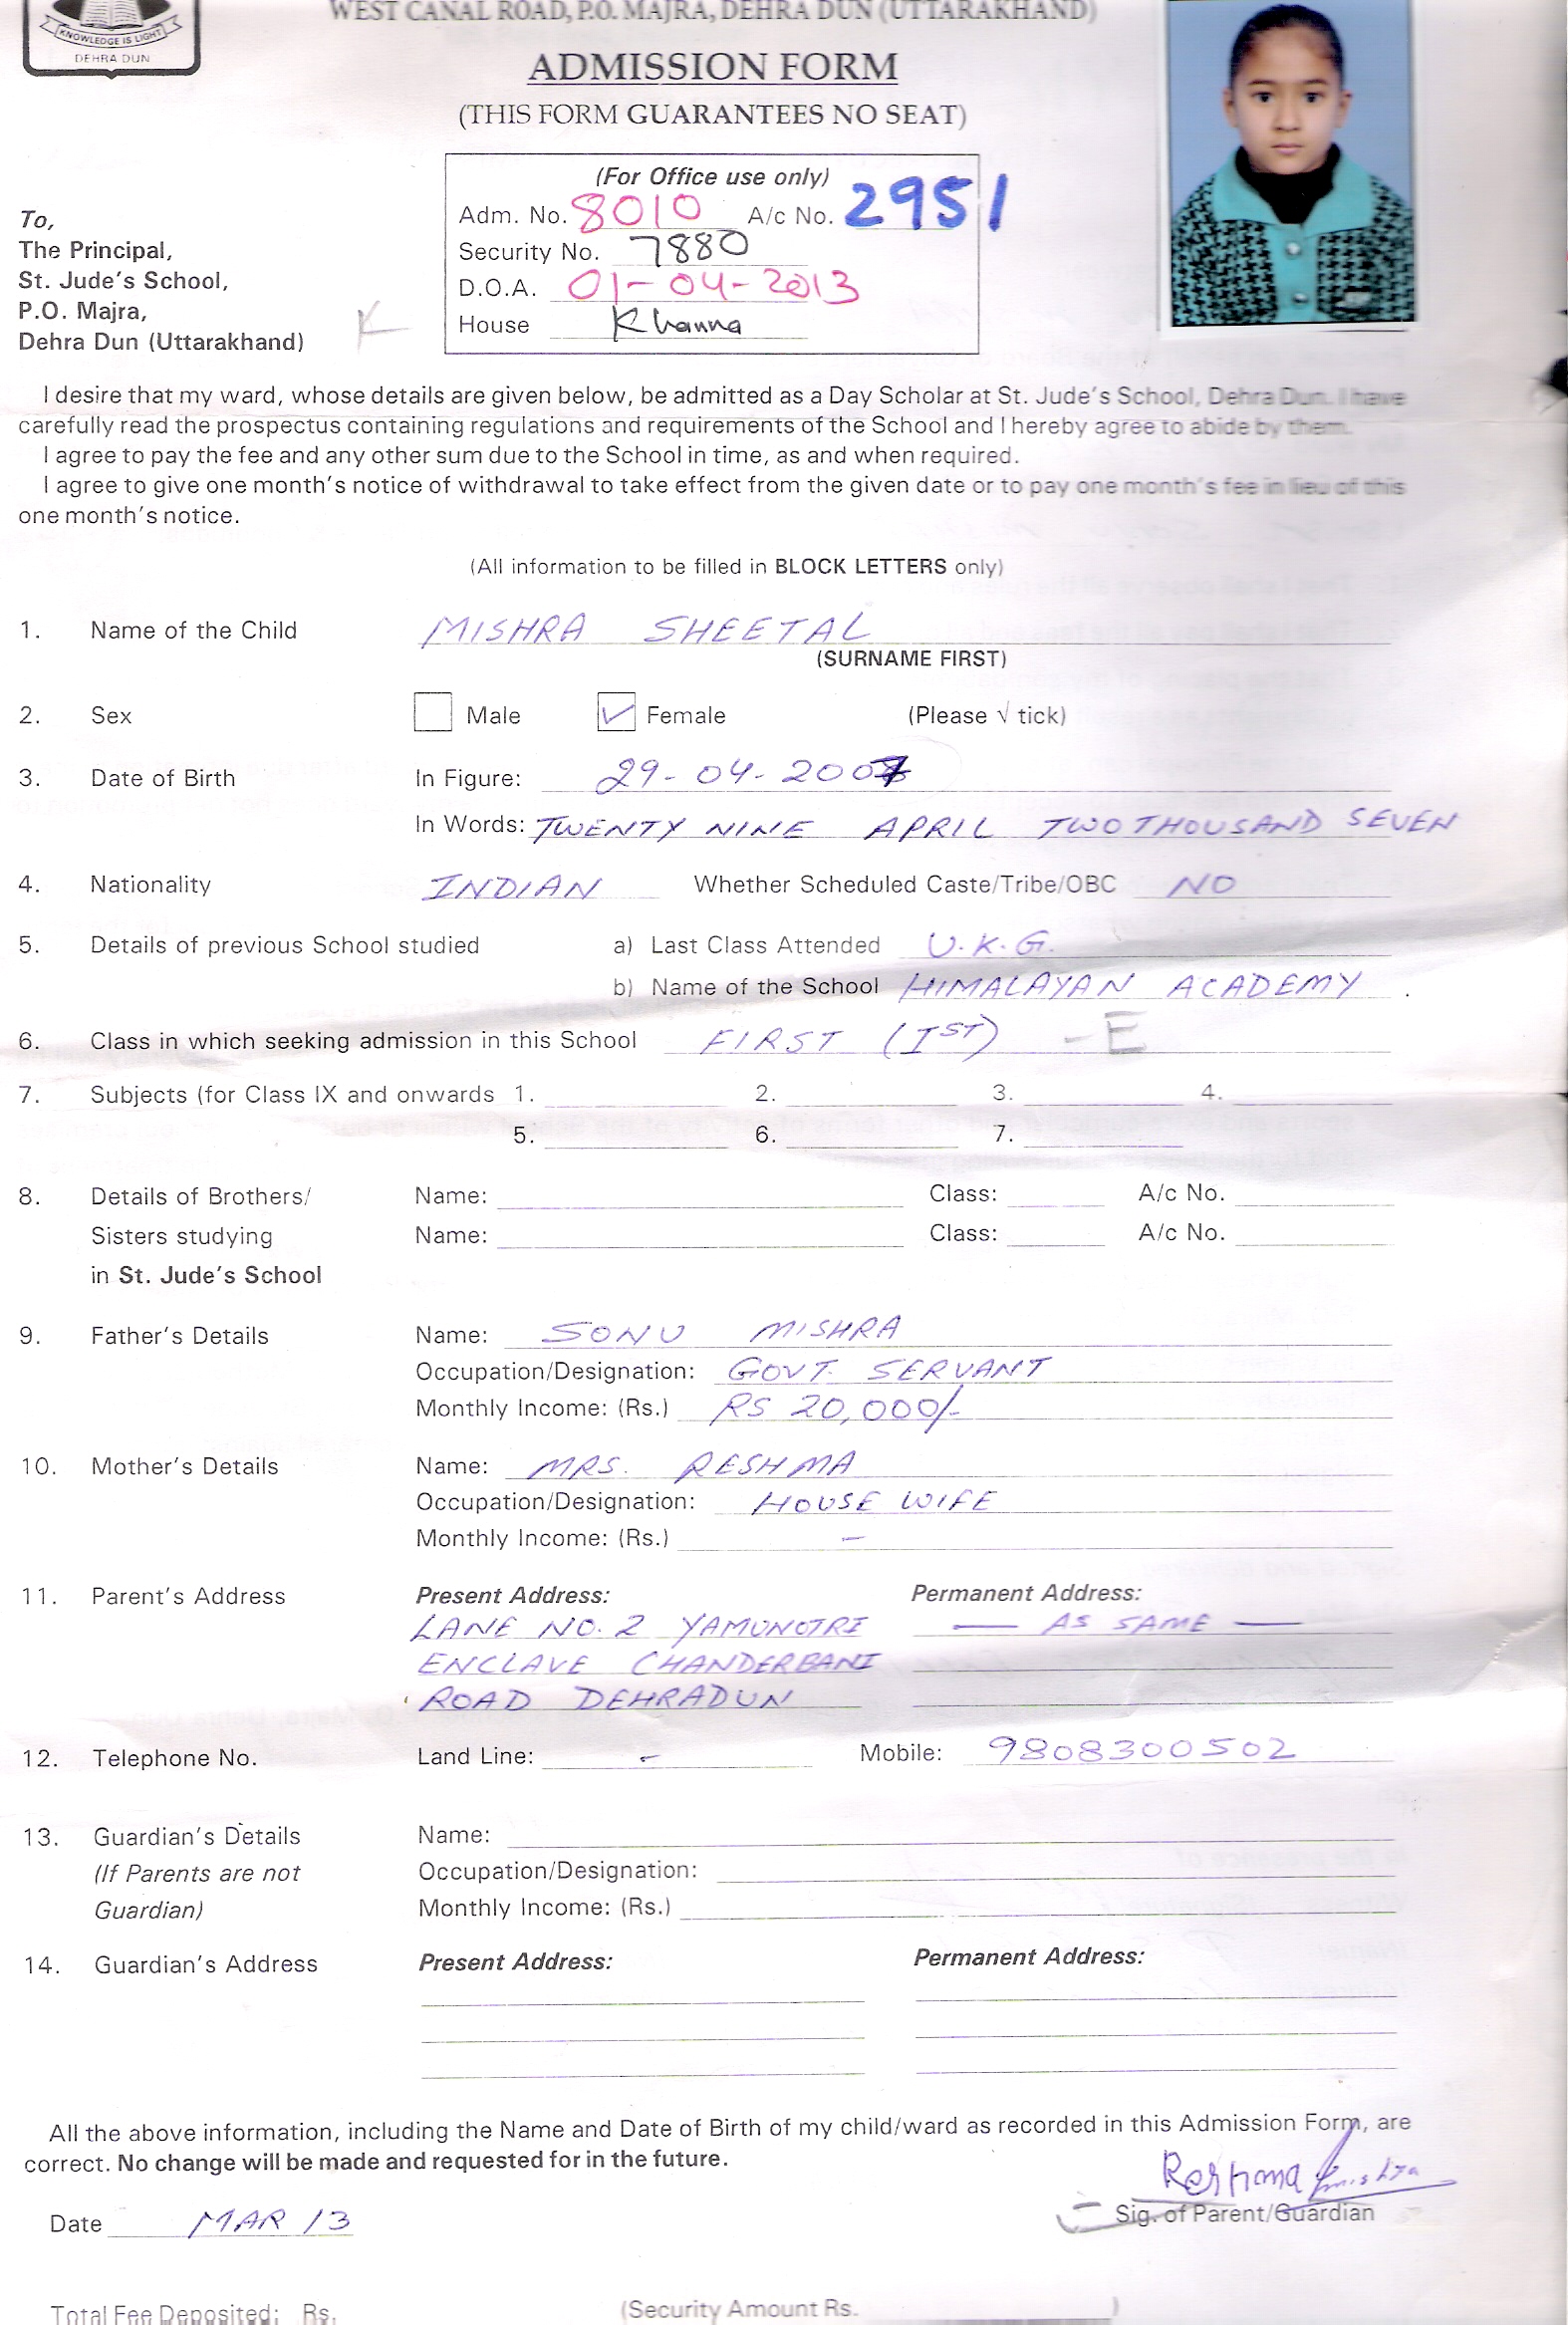 WEST CANAL ROAD, P.O. MAJRA, DEHRA DUN (UTTARAKHAND)
KNOWLEDGE IS LIGHT
DEHRA DUN
ADMISSION FORM
(THIS FORM GUARANTEES NO SEAT)
(For Office use only)
Adm. No. 8010 A/c No. 2951
Security No. 7880
D.O.A. 01-04-2013
House Khanna
To,
The Principal,
St. Jude's School,
P.O. Majra,
Dehra Dun (Uttarakhand)
K
I desire that my ward, whose details are given below, be admitted as a Day Scholar at St. Jude's School, Dehra Dun. I have
carefully read the prospectus containing regulations and requirements of the School and I hereby agree to abide by them.
I agree to pay the fee and any other sum due to the School in time, as and when required.
I agree to give one month's notice of withdrawal to take effect from the given date or to pay one month's fee in lieu of this
one month's notice.
(All information to be filled in BLOCK LETTERS only)
1. Name of the Child MISHRA SHEETAL
(SURNAME FIRST)
2. Sex Male ✓ Female (Please √ tick)
3. Date of Birth In Figure: 29-04-2007
In Words: TWENTY NINE APRIL TWO THOUSAND SEVEN
4. Nationality INDIAN Whether Scheduled Caste/Tribe/OBC NO
5. Details of previous School studied a) Last Class Attended U.K.G.
b) Name of the School HIMALAYAN ACADEMY .
6. Class in which seeking admission in this School FIRST (IST) - E
7. Subjects (for Class IX and onwards 1. 2. 3. 4.
5. 6. 7.
8. Details of Brothers/ Name: Class: A/c No.
Sisters studying Name: Class: A/c No.
in St. Jude's School
9. Father's Details Name: SONU MISHRA
Occupation/Designation: GOVT. SERVANT
Monthly Income: (Rs.) RS 20,000/-
10. Mother's Details Name: MRS. RESHMA
Occupation/Designation: HOUSE WIFE
Monthly Income: (Rs.) -
11. Parent's Address Present Address: Permanent Address:
LANE NO. 2 YAMUNOTRI — AS SAME —
ENCLAVE CHANDERBANI
ROAD DEHRADUN
12. Telephone No. Land Line: - Mobile: 9808300502
13. Guardian's Details Name:
(If Parents are not Occupation/Designation:
Guardian) Monthly Income: (Rs.)
14. Guardian's Address Present Address: Permanent Address:
All the above information, including the Name and Date of Birth of my child/ward as recorded in this Admission Form, are
correct. No change will be made and requested for in the future.
Reshma Mishra
Date MAR 13 Sig. of Parent/Guardian
Total Fee Deposited: Rs. (Security Amount Rs. )